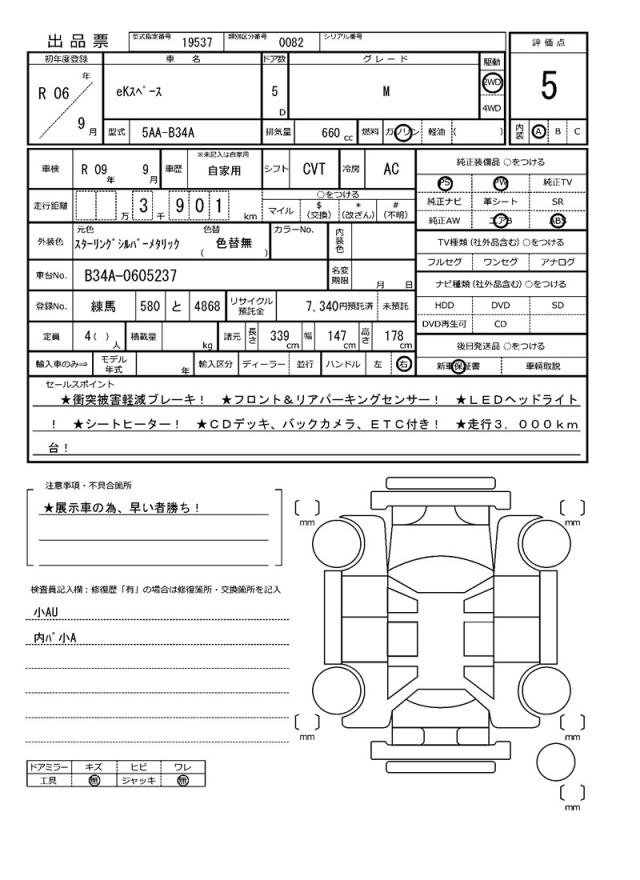 出品票 型式指定番号 19537 類別区分番号 0082 シリアル番号
評価点
5
内装 A B C
初年度登録 車名 ドア数 グレード 駆動
R 06 年 9 月 eKスペース 5 D M 2WD 4WD
型式 5AA-B34A 排気量 660 cc 燃料 ガソリン 軽油 ( )
車検 R 09 年 9 月 車歴 ※未記入は自家用 自家用 シフト CVT 冷房 AC
走行距離 万 3 千 9 0 1 km ○をつける
マイル $ (交換) * (改ざん) # (不明)
外装色 元色 スターリングシルバーメタリック 色替 ( 色替無 ) カラーNo. 内装色
車台No. B34A-0605237 名変期限 月 日
登録No. 練馬 580 と 4868 リサイクル預託金 7,340円預託済 未預託
定員 4( ) 人 積載量 kg 諸元 長さ 339 cm 幅 147 cm 高さ 178 cm
輸入車のみ⇒ モデル年式 年 輸入区分 ディーラー 並行 ハンドル 左 右
純正装備品 ○をつける
PS PW 純正TV
純正ナビ 革シート SR
純正AW エアB ABS
TV種類 (社外品含む) ○をつける
フルセグ ワンセグ アナログ
ナビ種類 (社外品含む) ○をつける
HDD DVD SD
DVD再生可 CD
後日発送品 ○をつける
新車保証書 車輌取説
セールスポイント
★衝突被害軽減ブレーキ! ★フロント&リアパーキングセンサー! ★LEDヘッドライト
! ★シートヒーター! ★CDデッキ、バックカメラ、ETC付き! ★走行3,000km
台!
注意事項・不具合箇所
★展示車の為、早い者勝ち!
検査員記入欄:修復歴「有」の場合は修復箇所・交換箇所を記入
小AU
内バ小A
ドアミラー キズ ヒビ ワレ
工具 無 ジャッキ 無
[ ] mm
[ ] mm
[ ] mm
[ ] mm
[ ] mm